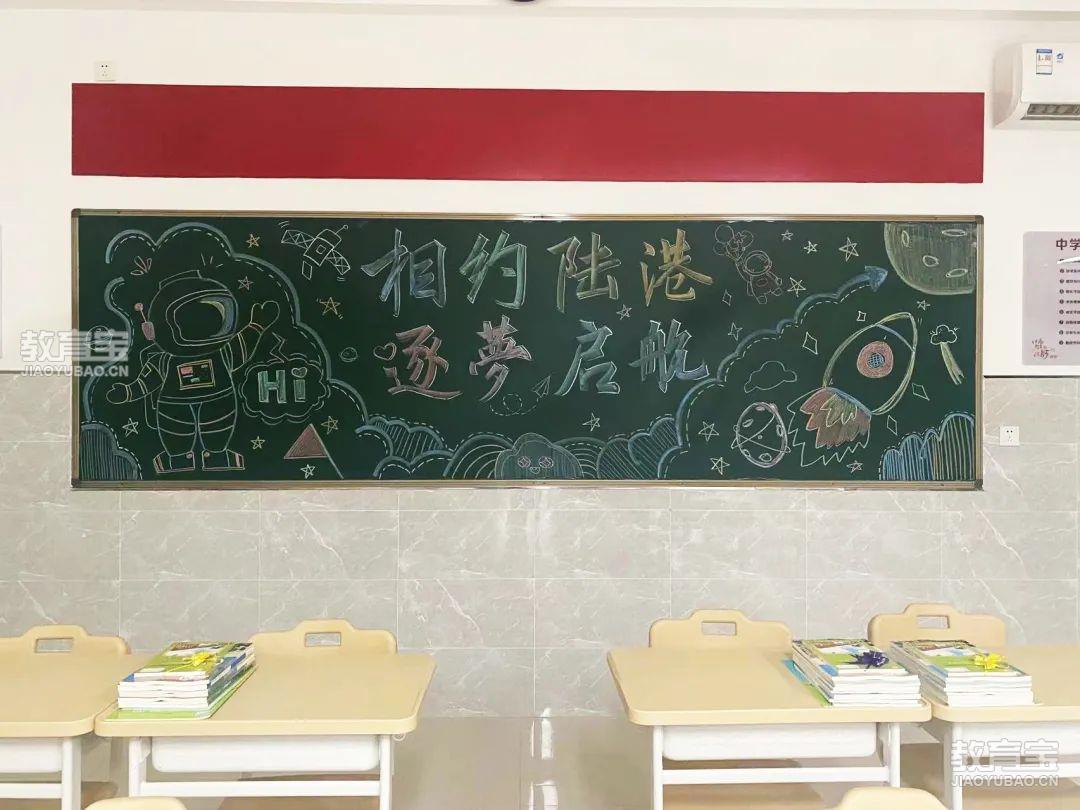 相约陆港
逐夢启航
Hi
中学
教育宝
JIAOYUBAO.CN
教育宝
JIAOYUBAO.CN